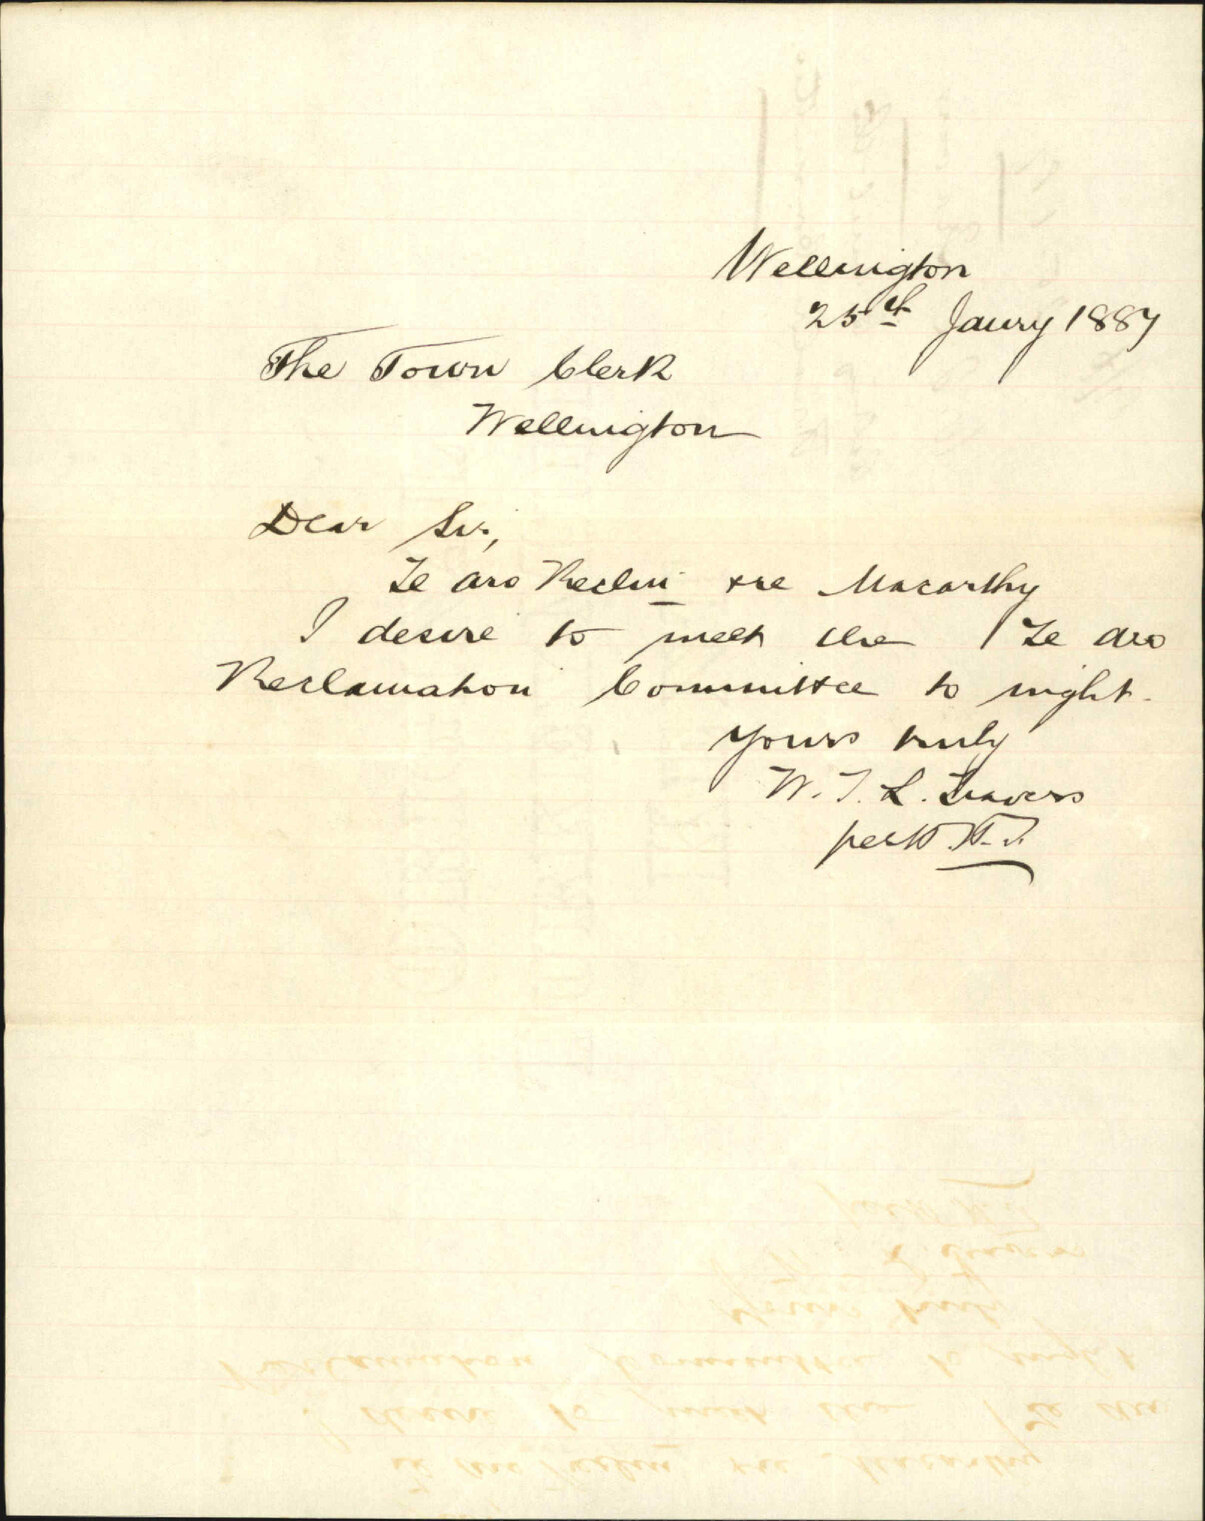 Wellington
25th Jaury 1887
The Town Clerk
Wellington
Dear Sir,
Te Aro Reclm re Macarthy
I desire to meet the Te Aro
Reclamation Committee to night.
Yours truly
W. T. L. Travers
per